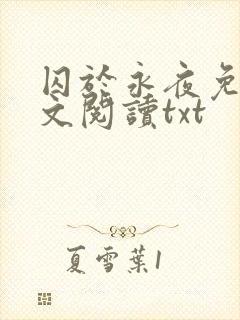 囚於永夜免
文閱讀txt
夏雪葉1